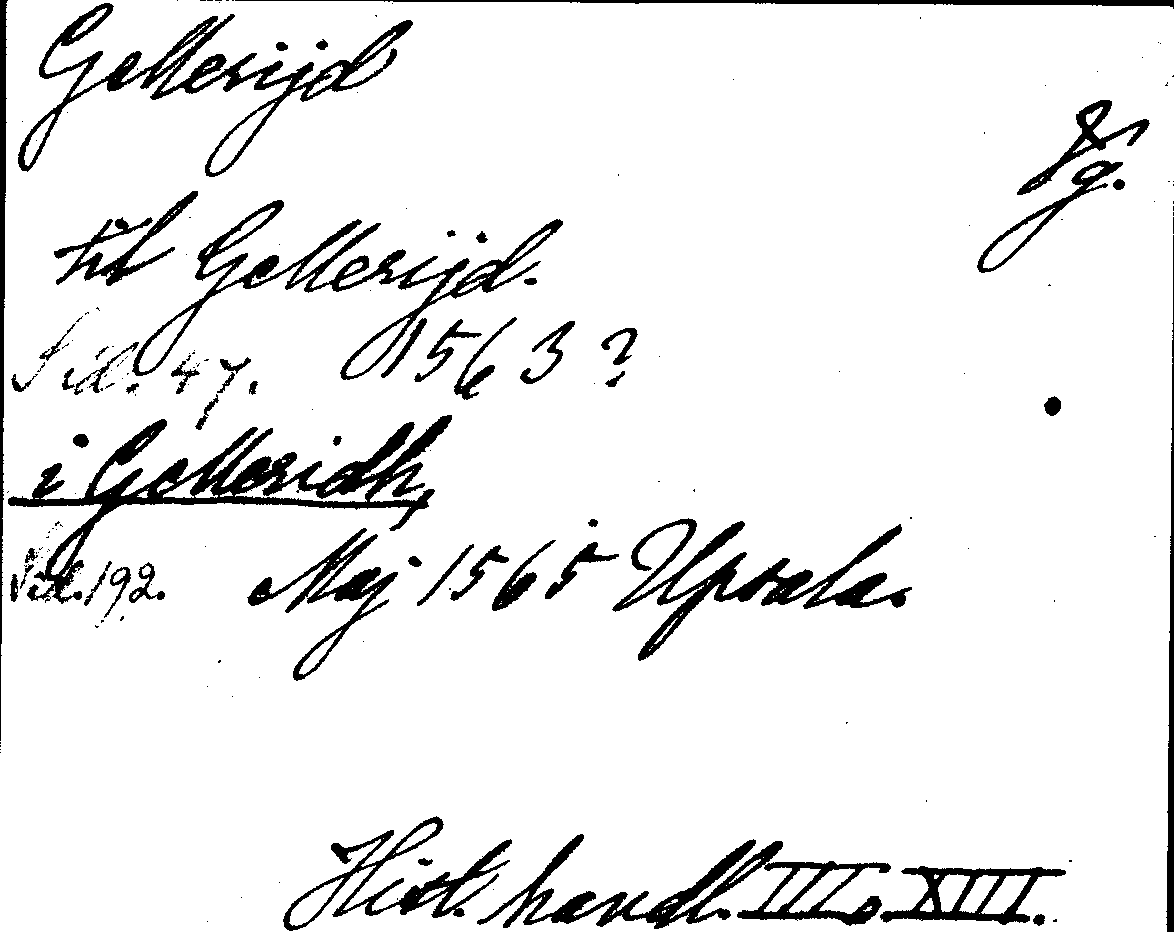 Gellerijd
Vg.
till Gellerijd.
Sid. 47. 1563?
i Gelleridh,
Sid. 192. Maj 1565 Upsala.
Hist. handl. III o. XIII.